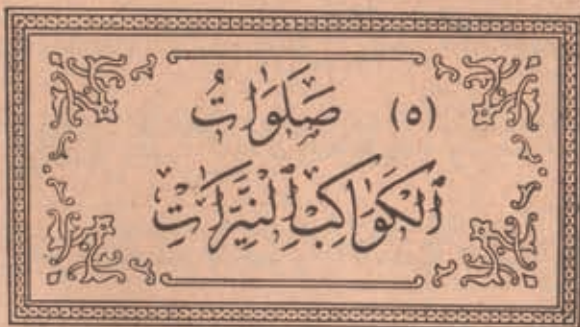 (٥) صَلَوَاتُ
الْكَوَاكِبِ النَّيِّرَاتِ